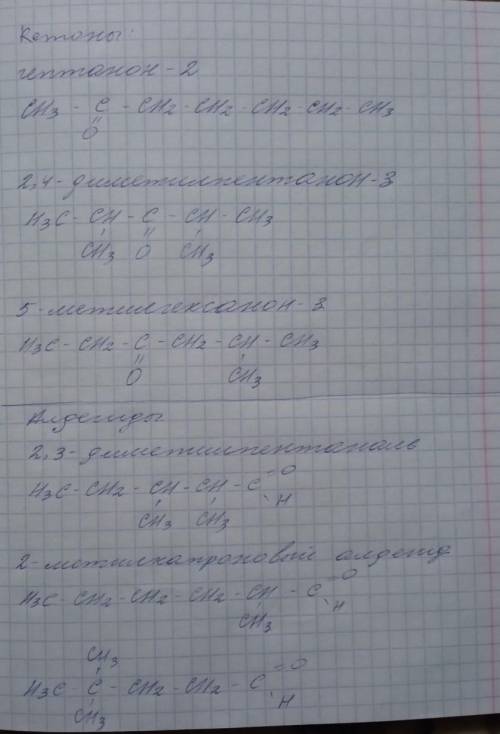 Кетоны:
гептанон-2
CH3 - C - CH2 - CH2 - CH2 - CH2 - CH3
=
O
2,4-диметилпентанон-3
H3C - CH - C - CH - CH3
CH3 O CH3
5-метилгексанон-3
H3C - CH2 - C - CH2 - CH - CH3
O CH3
Алдегиды
2,3-диметилпентаналь
H3C - CH2 - CH - CH - C = O
H
CH3 CH3
2-метилкапроновый алдегид
H3C - CH2 - CH2 - CH2 - CH - C = O
H
CH3
CH3
H3C - C - CH2 - CH2 - C = O
H
CH3